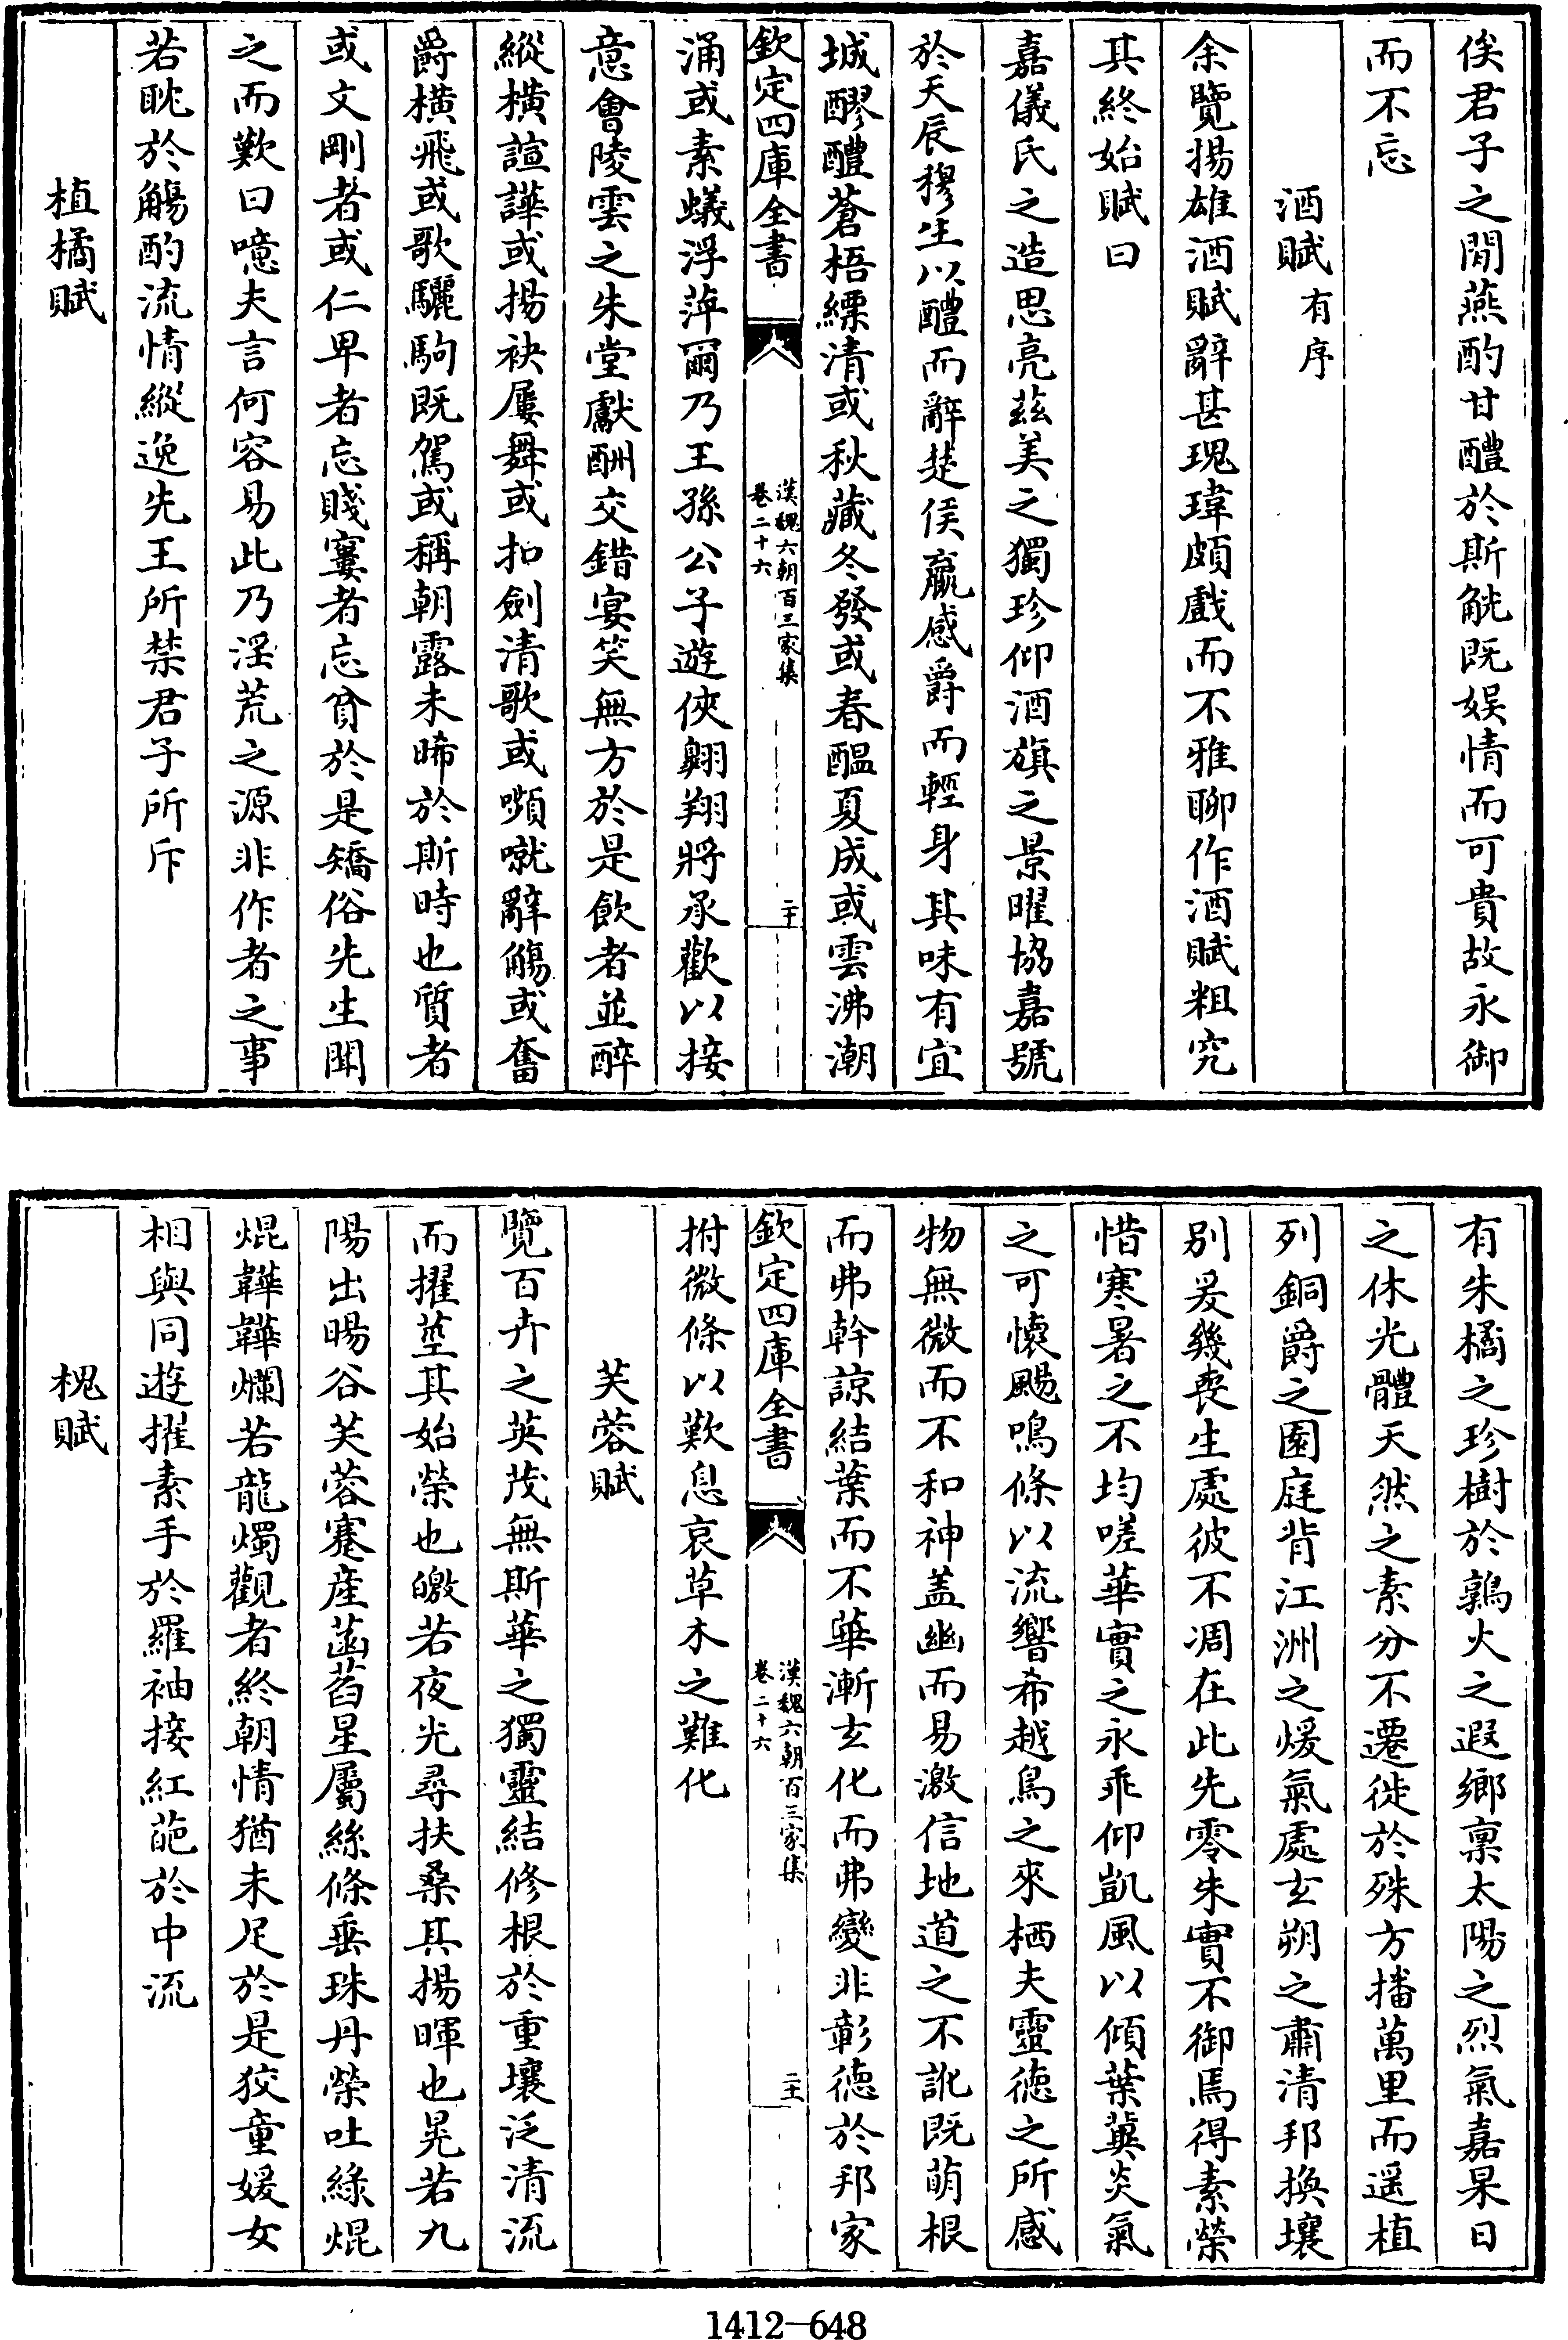 俟君子之閒燕酌甘醴於斯觥既娱情而可貴故永御
而不忘
酒賦有序
余覽揚雄酒賦辭甚瑰瑋頗戲而不雅聊作酒賦粗究
其終始賦曰
嘉儀氏之造思亮茲美之獨珍仰酒旗之景曜協嘉號
於天辰穆生以醴而辭楚侯嬴感爵而輕身其味有宜
城醪醴蒼梧縹清或秋藏冬發或春醖夏成或雲沸潮
欽定四庫全書
漢魏六朝百三家集
卷二十六
二十
涌或素蟻浮萍爾乃王孫公子遊俠翺翔將承歡以接
意會陵雲之朱堂獻酬交錯宴笑無方於是飲者並醉
縱横諠譁或揚袂屢舞或扣劍清歌或嚬噈辭觴或奮
爵横飛或歌驪駒既駕或稱朝露未晞於斯時也質者
或文剛者或仁卑者忘賤窶者忘貧於是矯俗先生聞
之而歎曰噫夫言何容易此乃淫荒之源非作者之事
若耽於觴酌流情縱逸先王所禁君子所斥
植橘賦
有朱橘之珍樹於鶉火之遐鄉稟太陽之烈氣嘉杲日
之休光體天然之素分不遷徙於殊方播萬里而遥植
列銅爵之園庭背江洲之煖氣處玄朔之肅清邦換壤
别爰幾喪生處彼不凋在此先零朱實不御焉得素榮
惜寒暑之不均嗟華實之永乖仰凱風以傾葉冀炎氣
之可懷颺鳴條以流響希越鳥之來栖夫靈徳之所感
物無微而不和神盖幽而易激信地道之不訛既萌根
而弗幹諒結葉而不華漸玄化而弗變非彰徳於邦家
欽定四庫全書
漢魏六朝百三家集
卷二十六
二十一
拊微條以歎息哀草木之難化
芙蓉賦
覽百卉之英茂無斯華之獨靈結修根於重壤泛清流
而擢莖其始榮也皦若夜光尋扶桑其揚暉也晃若九
陽出暘谷芙蓉蹇産菡萏星屬絲條垂珠丹榮吐緑焜
焜韡韡爛若龍燭觀者終朝情猶未足於是狡童媛女
相與同遊擢素手於羅袖接紅葩於中流
槐賦
1412—648